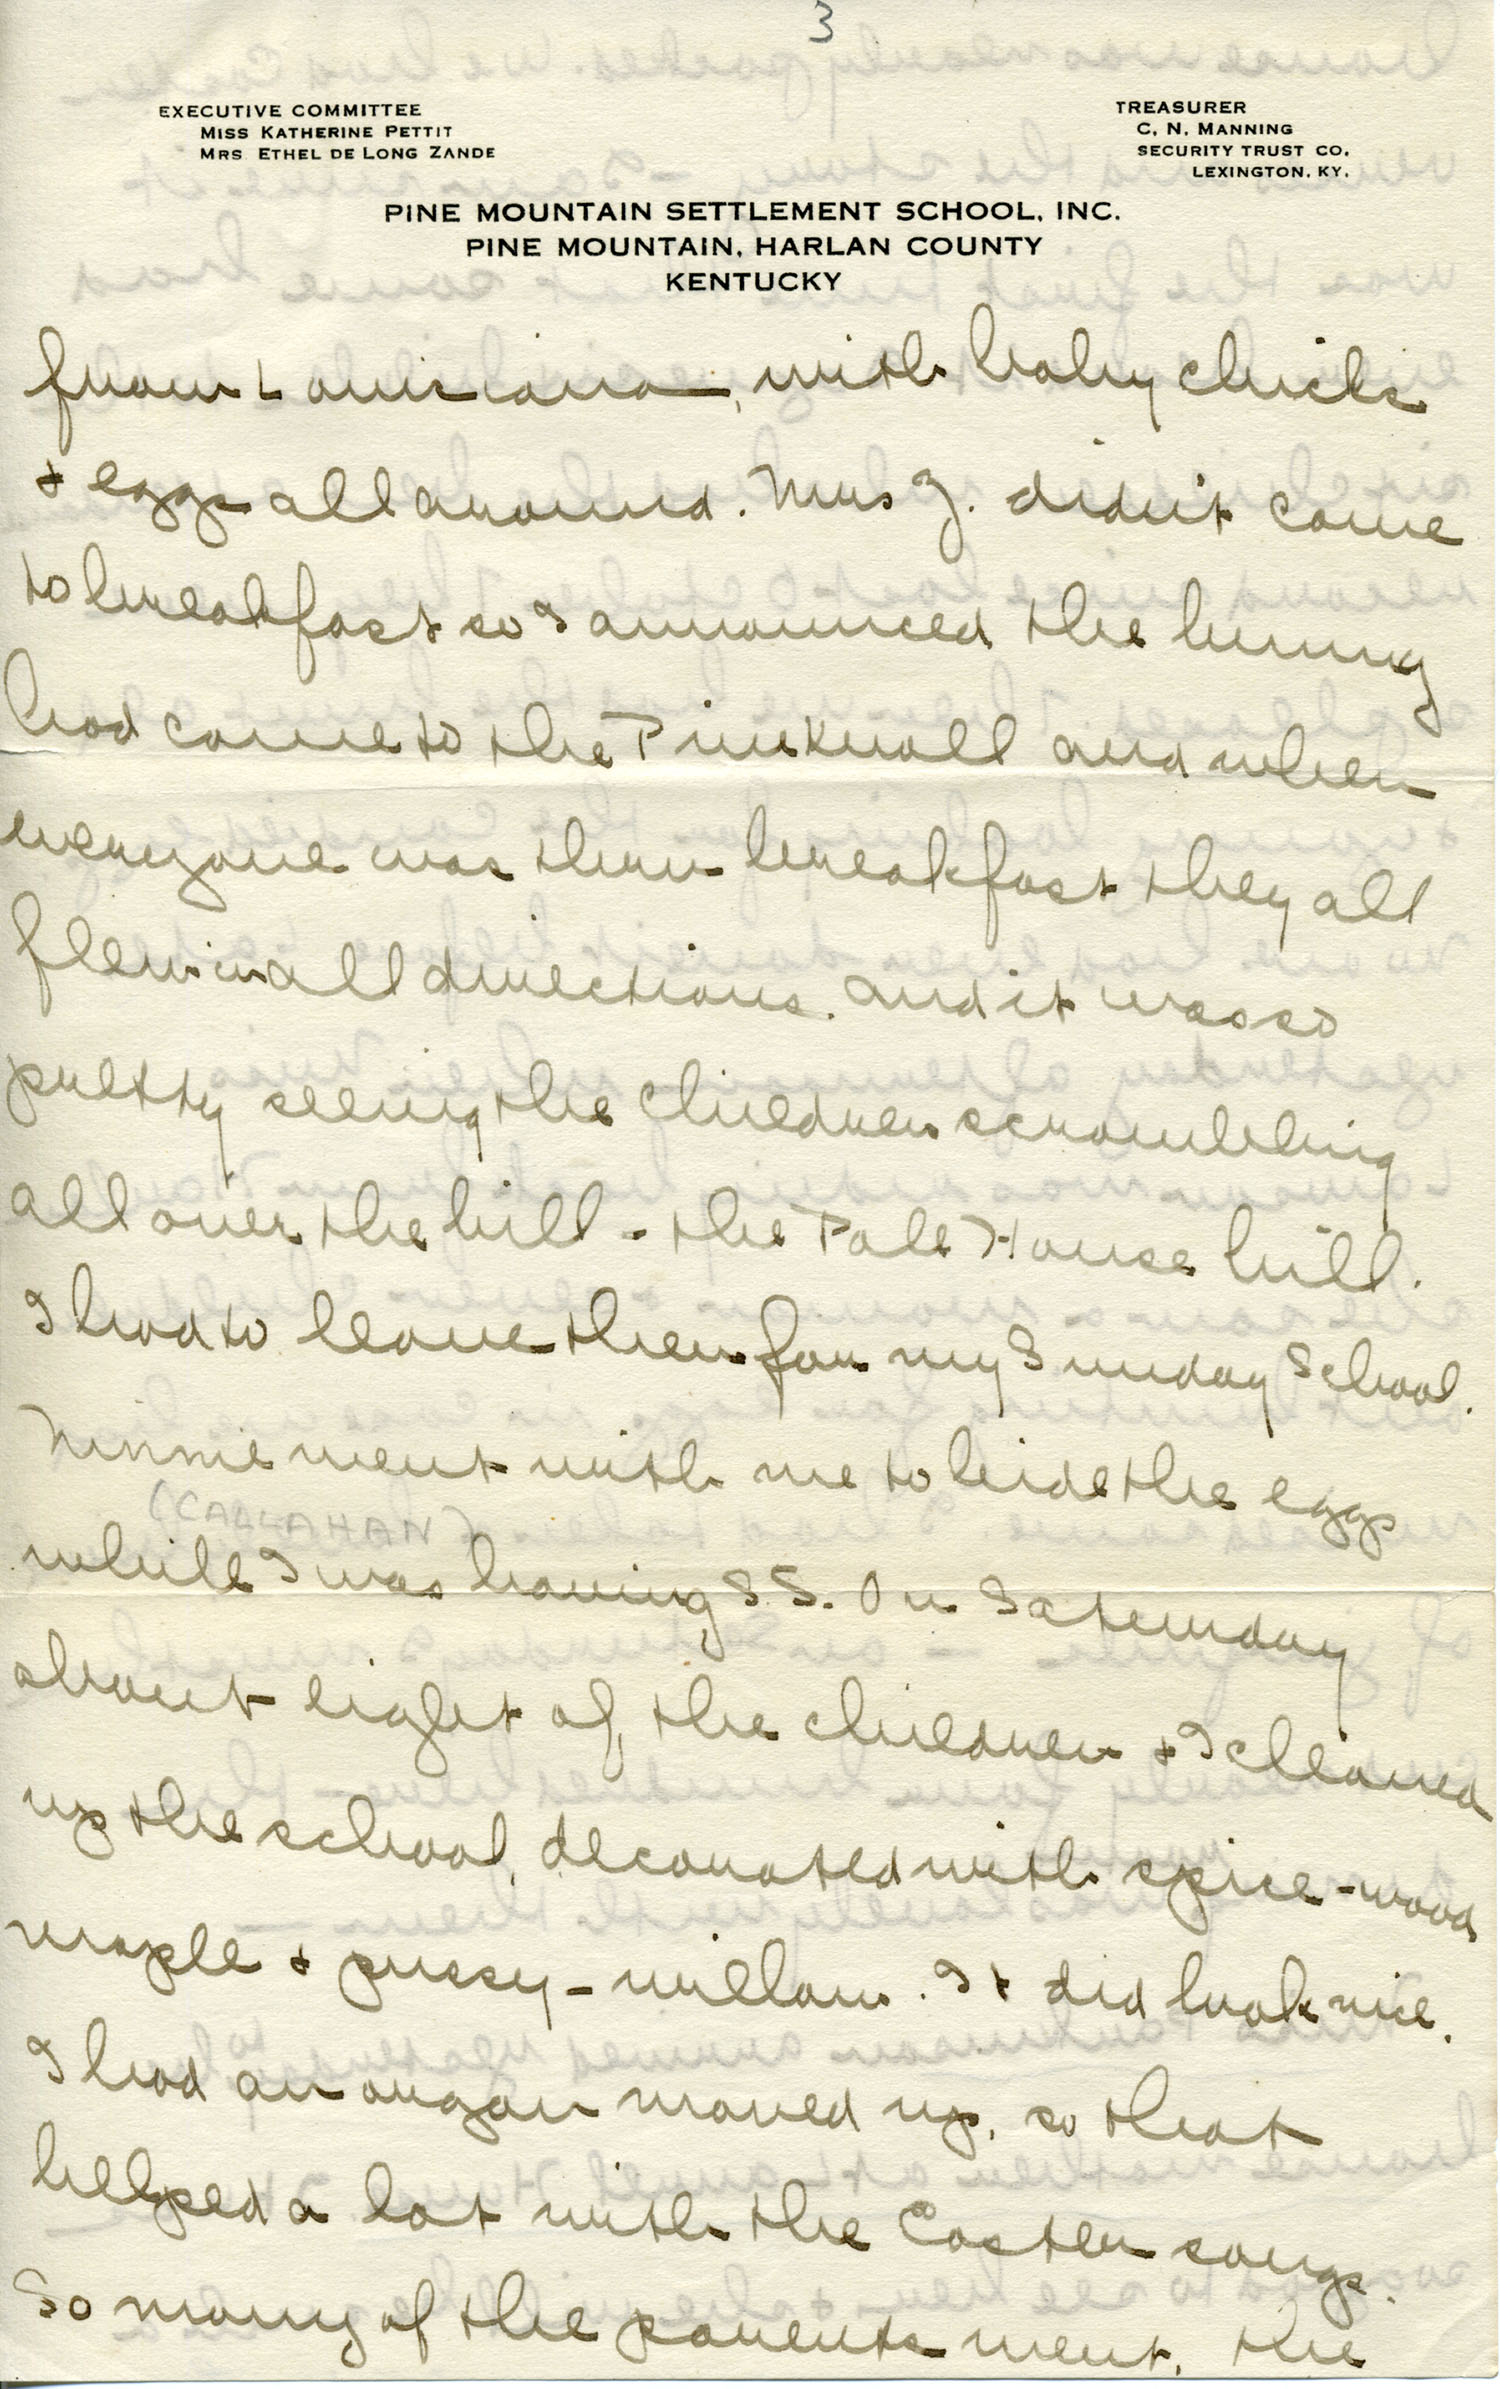 3
EXECUTIVE COMMITTEE
MISS KATHERINE PETTIT
MRS ETHEL DE LONG ZANDE
TREASURER
C. N. MANNING
SECURITY TRUST CO.
LEXINGTON. KY.
PINE MOUNTAIN SETTLEMENT SCHOOL, INC.
PINE MOUNTAIN, HARLAN COUNTY
KENTUCKY
from Louisiana, with baby chicks
& eggs all around. Mrs Z. didn't come
to breakfast so I announced the bunny
had come to the Pine Knoll and when
everyone was thru breakfast they all
flew in all directions. And it was so
pretty seeing the children scrambling
all over the hill - the Pole House hill.
I had to leave them for my Sunday School.
Minnie went with me to hide the eggs
(CALLAHAN)
while I was having S.S. On Saturday
about eight of the children & I cleaned
up the school, decorated with spice-wood
maple & pussy-willow. It did look nice.
I had an organ moved up, so that
helped a lot with the Easter songs.
So many of the parents went, the